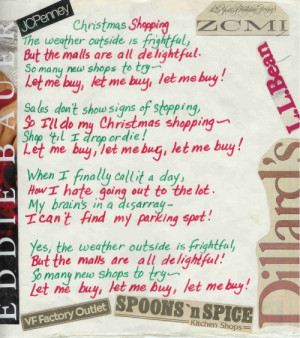 JCPenney
Christmas Shopping
ZCMI
The weather outside is frightful,
But the malls are all delightful.
So many new shops to try—
Let me buy, let me buy, let me buy!
L.L.Bean
EDDIE BAUER
Sales don't show signs of stopping,
So I'll do my Christmas shopping—
Shop 'til I drop or die!
Let me buy, let me buy, let me buy!
When I finally call it a day,
How I hate going out to the lot.
My brain's in a disarray—
I can't find my parking spot!
Dillard's
Yes, the weather outside is frightful,
But the malls are all delightful!
So many new shops to try—
Let me buy, let me buy, let me buy!
VF Factory Outlet
SPOONS 'n SPICE
Kitchen Shops